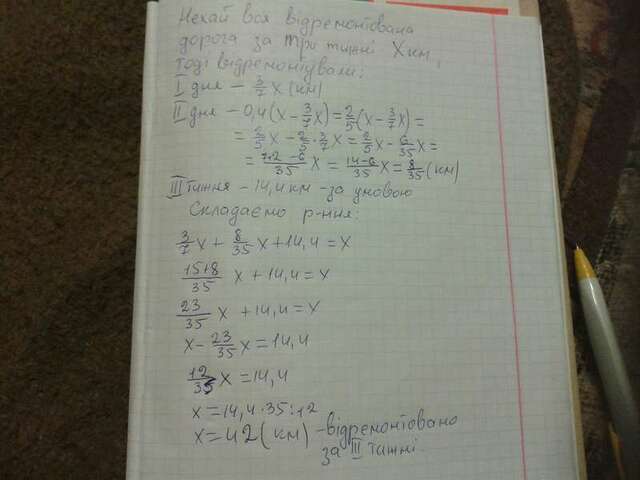 Нехай вся відремонтована
дорога за три тижні X км,
тоді відремонтували:
I дня – 3/7 x (км)
II дня – 0,4(x – 3/7x) = 2/5(x – 3/7x) =
= 2/5x – 2/5 · 3/7x = 2/5x – 6/35x =
= 7·2 – 6/35 x = 14–6/35 x = 8/35 (км)
III тижня – 14,4 км – за умовою
Складаємо р-ння:
3/7x + 8/35x + 14,4 = x
15+8/35 x + 14,4 = x
23/35 x + 14,4 = x
x – 23/35x = 14,4
12/35 x = 14,4
x = 14,4 · 35 : 12
x = 42 (км) – відремонтовано
за III тижні.